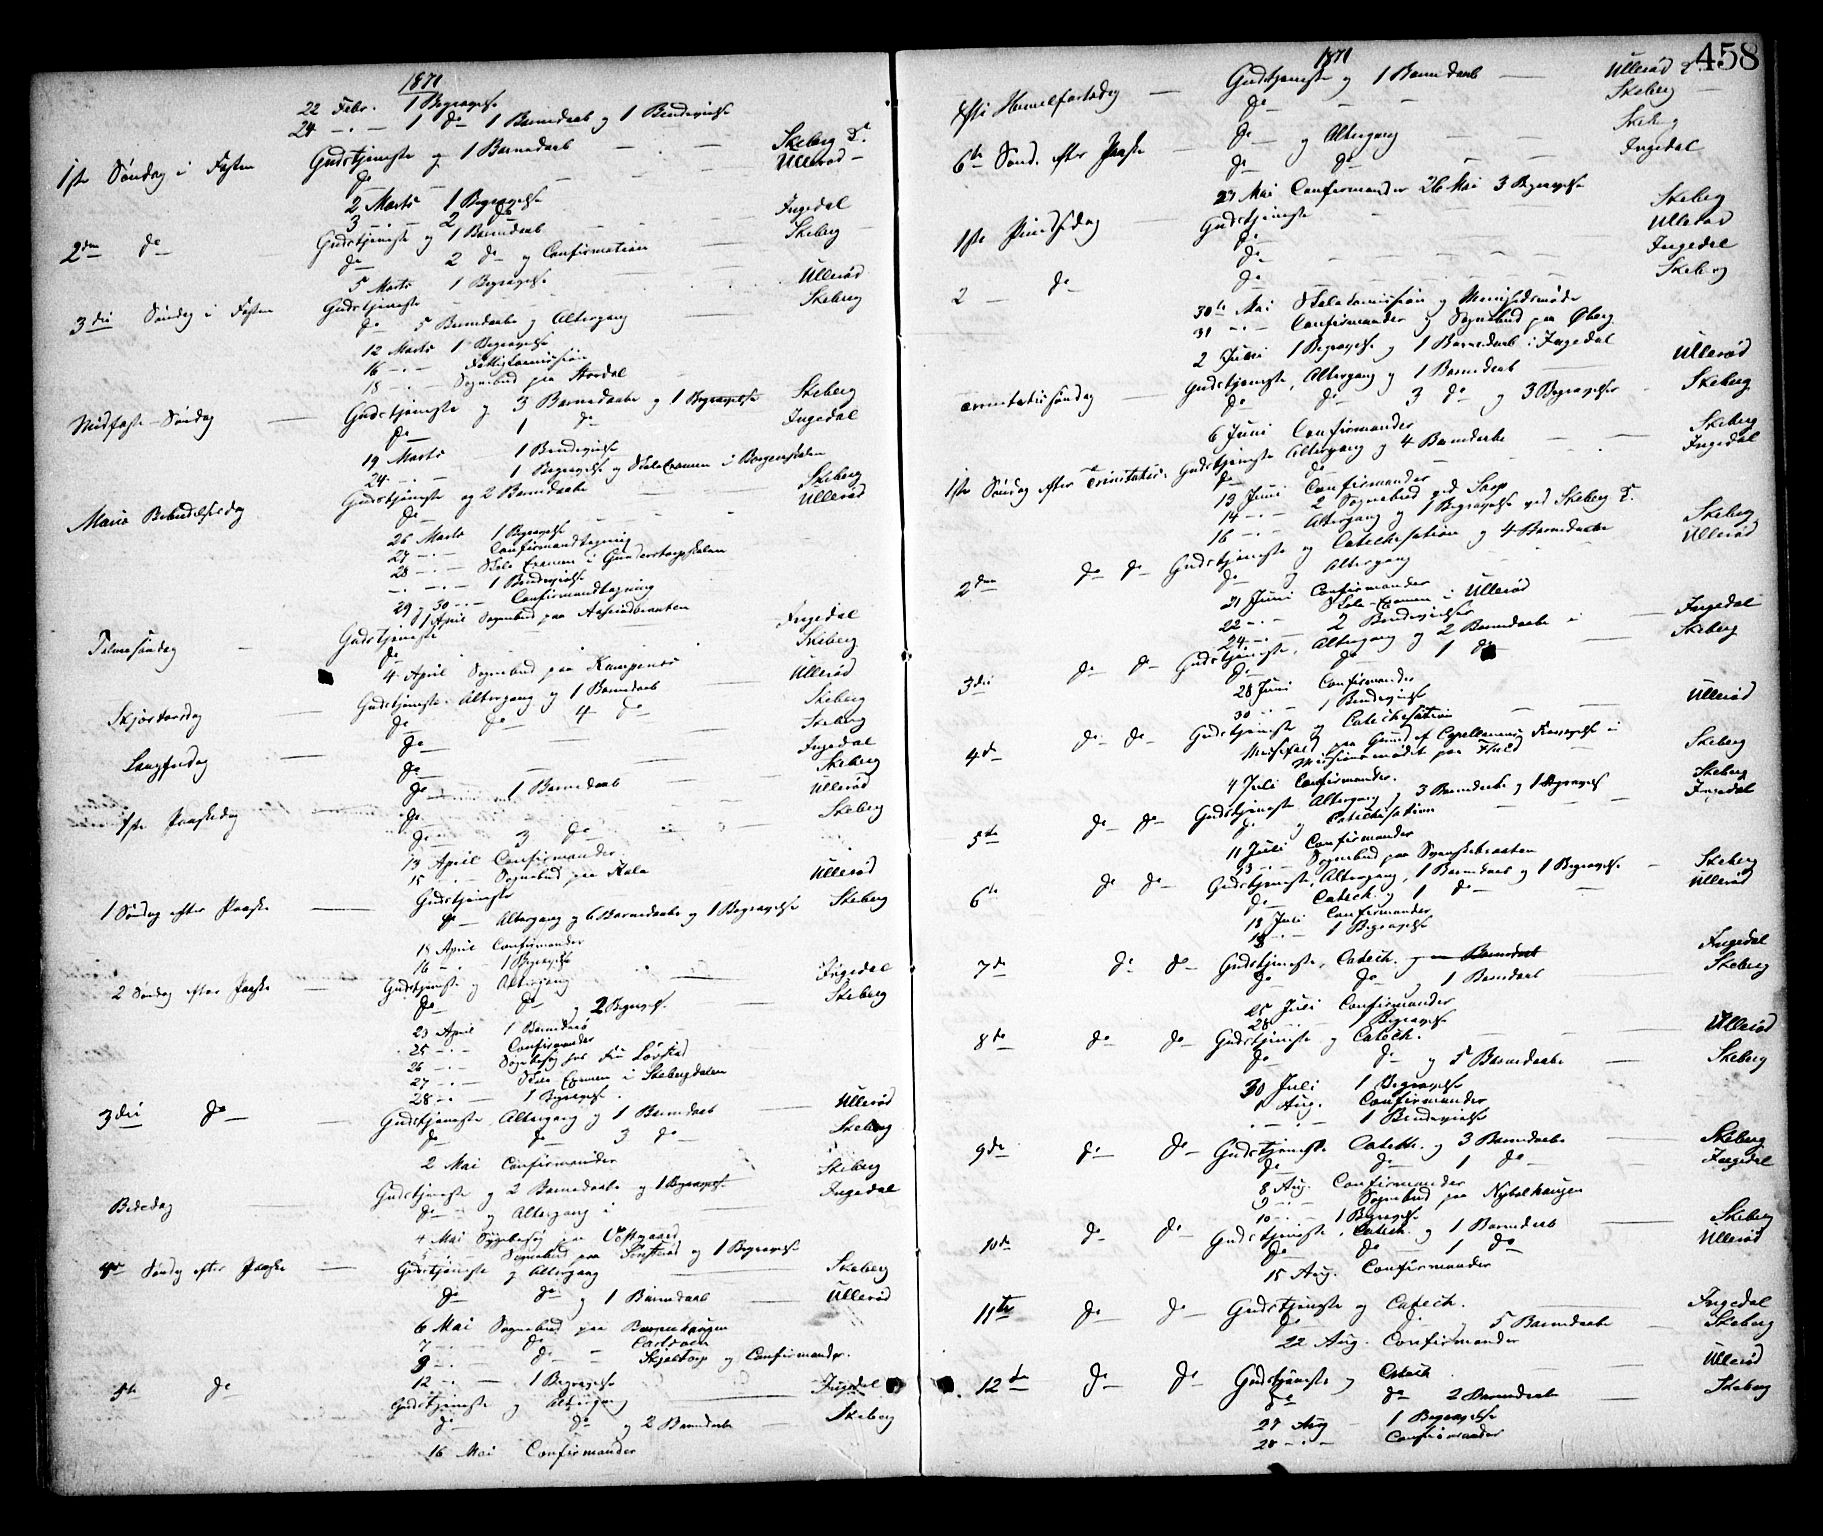 1871
22 Febr. 1 Begravelse
24 -"- 1 do 1 Barnedaab og 1 Brudevielse
1ste Søndag i Fasten Gudstjeneste og 1 Barnedaab Skeberg K.
do Ullerød
2 Marts 1 Begravelse
3 - 2 do
2den do Gudstjeneste og 1 Barnedaab Ingedal
do 2 do og Confirmation Skeberg
5 Marts 1 Begravelse
3die Søndag i Fasten Gudstjeneste Ullerød
do 5 Barnedaabe og Altergang Skeberg
12 Marts 1 Begravelse
16 -"- Fattigkommission
18 -"- Sognebud paa
Midfaste Søndag Gudstjeneste og 3 Barnedaabe og 1 Begravelse Skeberg
do 1 do Ingedal
19 Marts 1 Brudevielse
24 -"- 1 Begravelse og Skole Examen i Borgenskolen
Maria Bebudelsesdag Gudstjeneste og 2 Barnedaabe Skeberg
do Ullerød
26 Marts 1 Begravelse
27 -"- Confirmandtagning
28 -"- Skole Examen i
-"- 1 Brudevielse
29 og 30 -"- Confirmandtagning
1 April Sognebud paa
Palmesøndag Gudstjeneste Ingedal
do Skeberg
4 April Sognebud paa
Skjærtorsdag Gudstjeneste, Altergang og 1 Barnedaab Ullerød
do do 4 do Skeberg
Langfredag do Skeberg
do Ingedal
1ste Paaskedag do 1 Barnedaab Skeberg
do Ullerød
do 3 do Skeberg
13 April Confirmander
15 -"- Sognebud paa
1 Søndag efter Paaske Gudstjeneste Ullerød
do Altergang og 6 Barnedaabe og 1 Begravelse Skeberg
18 April Confirmander
16 -"- 1 Begravelse
2 Søndag efter Paaske Gudstjeneste og Altergang Ingedal
do do og 2 Begravelse Skeberg
23 April 1 Barnedaab
25 -"- Confirmander
26 -"- Sygebesøg hos
27 -"- Skole Examen i Skebergdalen
28 -"- 1 Begravelse
3die do Gudstjeneste, Altergang og 1 Barnedaab Ullerød
do do 3 do Skeberg
2 Mai Confirmander
Bededag Gudstjeneste og 2 Barnedaabe og 1 Begravelse Skeberg
do og Altergang Ingedal
4 Mai Sygebesøg paa
5 -"- Sognebud paa og 1 Begravelse
4de Søndag efter Paaske Gudstjeneste og Altergang Skeberg
do do og 1 Barnedaab Ullerød
6 Mai Sognebud paa
7 -"- do
9 -"- do Skjeltorp og Confirmander.
12 -"- 1 Begravelse
5te do Gudstjeneste og Altergang Ingedal
do do og 2 Barnedaabe Skeberg
16 Mai Confirmander
458
1871
Christi Himmelfartsdag Gudstjeneste og 1 Barnedaab Ullerød K
do Skeberg
6te Sønd. efter Paaske do og Altergang Skeberg
do do Ingedal
23 Mai Confirmander 26 Mai 3 Begravelse
1ste Pintsedag Gudstjeneste Skeberg
do Ullerød
2 do do Ingedal
do Skeberg
30te Mai Skolekommission og Menighedsmøde
31 -"- Confirmander og Sognebud paa Øberg
2 Juni 1 Begravelse og 1 Barnedaab i Ingedal
Trinitatissøndag Gudstjeneste, Altergang og 1 Barnedaab Ullerød
do do 3 do og 3 Begravelser Skeberg
6 Juni Confirmander
1ste Søndag efter Trinitatis. Gudstjeneste Altergang og 4 Barnedaabe Skeberg
do do Ingedal
13 Juni Confirmander
14 -"- 2 Sognebud ved Sarp
16 -"- Altergang og 1 Begravelse ved Skeberg K.
2den do do Gudstjeneste og Catechesation og 4 Barnedaabe Skeberg
do og Altergang Ullerød
21 Juni Confirmander
22 -"- Skole-Examen i Ullerød
24 -"- 2 Brudevielser
3die do do Gudstjeneste, Altergang og 2 Barnedaabe Ingedal
do do 1 do Skeberg
28 Juni Confirmander
30 -"- 1 Brudevielse
4de do do Gudstjeneste og Catechesation Ullerød
Messefald paa Grund af Capellanens Fraværelse i
Missionsmødet paa Skeberg
4 Juli Confirmander.
5te do do Gudstjeneste, Altergang og 3 Barnedaabe og 1 Begravelse Skeberg
do og Catechesation Ingedal
11 Juli Confirmander
13 -"- Sognebud paa
6te do do Gudstjeneste, Altergang, 1 Barnedaab og 1 Begravelse Skeberg
do Catech. og 1 do Ullerød
18 Juli Confirmander
18 -"- 1 Begravelse
7de do do Gudstjeneste, Catech. og en Barnedaab Ingedal
do do og 1 Barnedaab Skeberg
25 Juli Confirmander
28 -"- 1 Begravelse
8de do do Gudstjeneste og Catech. Ullerød
do do og 5 Barnedaabe Skeberg
30 Juli 1 Begravelse
1 Aug. Confirmander
-"- 1 Brudevielse
9de do do Gudstjeneste Catech. og 3 Barnedaabe Skeberg
do do 1 do Ingedal
8 Aug. Confirmander
9 -"- Sognebud paa Nybolhaugen
10 -"- 1 Begravelse
10de do do Gudstjeneste, Catech. og 1 Barnedaab Skeberg
do do 1 do Ullerød
15 Aug. Confirmander
11te do do Gudstjeneste og Catech. Ingedal
do do og 5 Barnedaabe Skeberg
22 Aug. Confirmander
12de do do Gudstjeneste og Catech Ullerød
do do 2 Barnedaabe Skeberg
27 Aug 1 Begravelse
28 -"- Confirmander